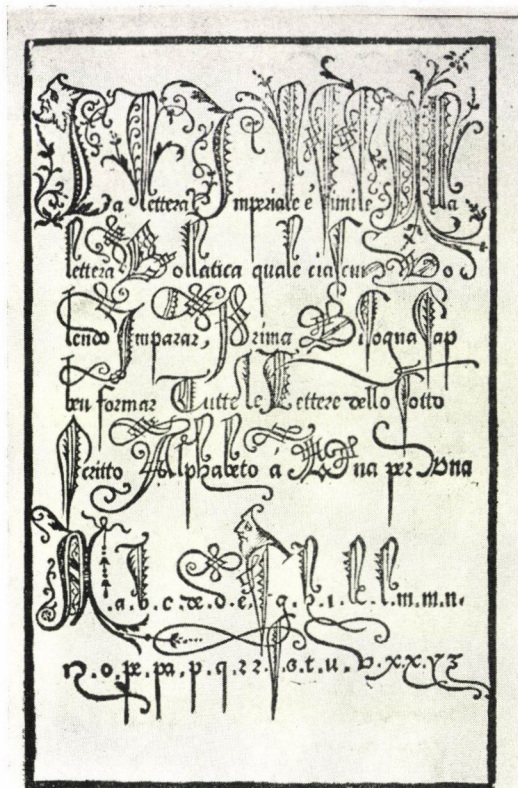 La lettera Imperiale é Simile Alla
lettera Bollatica quale ciascuno Vo
lendo Imparar, Prima Bisogna Sap
ben formar Tutte le Lettere dello Sotto
Scritto Alphabeto á Una per Una
.a.b.c.d.d.e.f.g.h.i.k.l.m.m.n.
n.o.pe.pa.p.q.rr.s.s.t.u.v.x.x.y.z